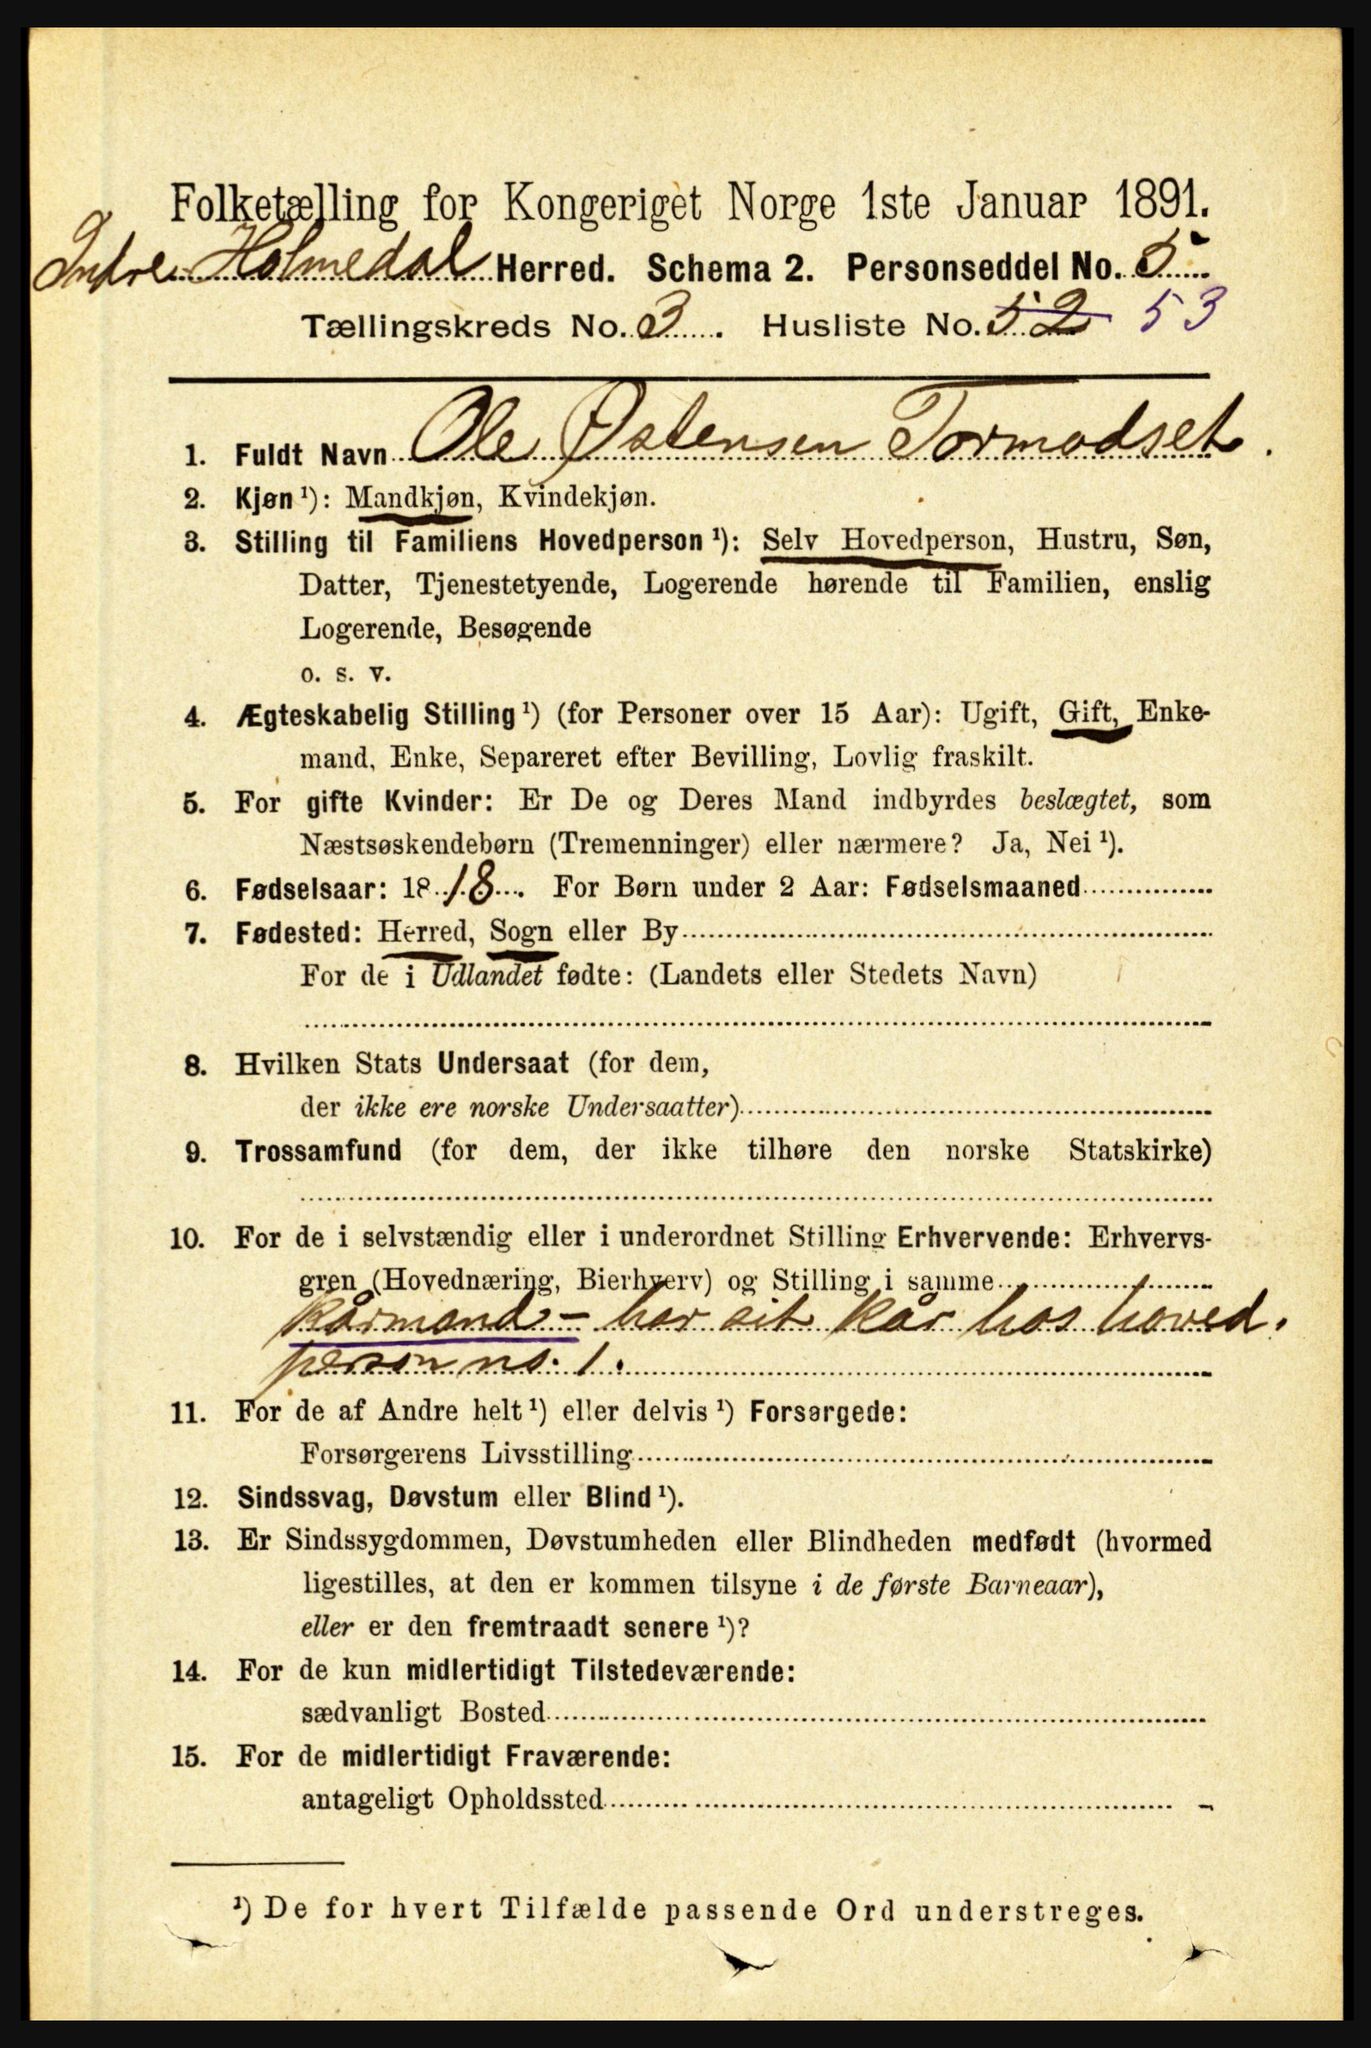 Folketælling for Kongeriget Norge 1ste Januar 1891.
Indre Holmedal Herred. Schema 2. Personseddel No. 5
Tællingskreds No. 3. Husliste No. 52 53
1. Fuldt Navn Ole Østensen Tormodset.
2. Kjøn ¹): Mandkjøn, Kvindekjøn.
3. Stilling til Familiens Hovedperson ¹): Selv Hovedperson, Hustru, Søn,
Datter, Tjenestetyende, Logerende hørende til Familien, enslig
Logerende, Besøgende
o. s. v.
4. Ægteskabelig Stilling ¹) (for Personer over 15 Aar): Ugift, Gift, Enke-
mand, Enke, Separeret efter Bevilling, Lovlig fraskilt.
5. For gifte Kvinder: Er De og Deres Mand indbyrdes beslægtet, som
Næstsøskendebørn (Tremenninger) eller nærmere? Ja, Nei ¹).
6. Fødselsaar: 1818. For Børn under 2 Aar: Fødselsmaaned
7. Fødested: Herred, Sogn eller By
For de i Udlandet fødte: (Landets eller Stedets Navn)
8. Hvilken Stats Undersaat (for dem,
der ikke ere norske Undersaatter)
9. Trossamfund (for dem, der ikke tilhøre den norske Statskirke)
10. For de i selvstændig eller i underordnet Stilling Erhvervende: Erhvervs-
gren (Hovednæring, Bierhverv) og Stilling i samme
kårmand - har sit kår hos hoved.
person no. 1.
11. For de af Andre helt ¹) eller delvis ¹) Forsørgede:
Forsørgerens Livsstilling
12. Sindssvag, Døvstum eller Blind ¹).
13. Er Sindssygdommen, Døvstumheden eller Blindheden medfødt (hvormed
ligestilles, at den er kommen tilsyne i de første Barneaar),
eller er den fremtraadt senere ¹)?
14. For de kun midlertidigt Tilstedeværende:
sædvanligt Bosted
15. For de midlertidigt Fraværende:
antageligt Opholdssted
¹) De for hvert Tilfælde passende Ord understreges.